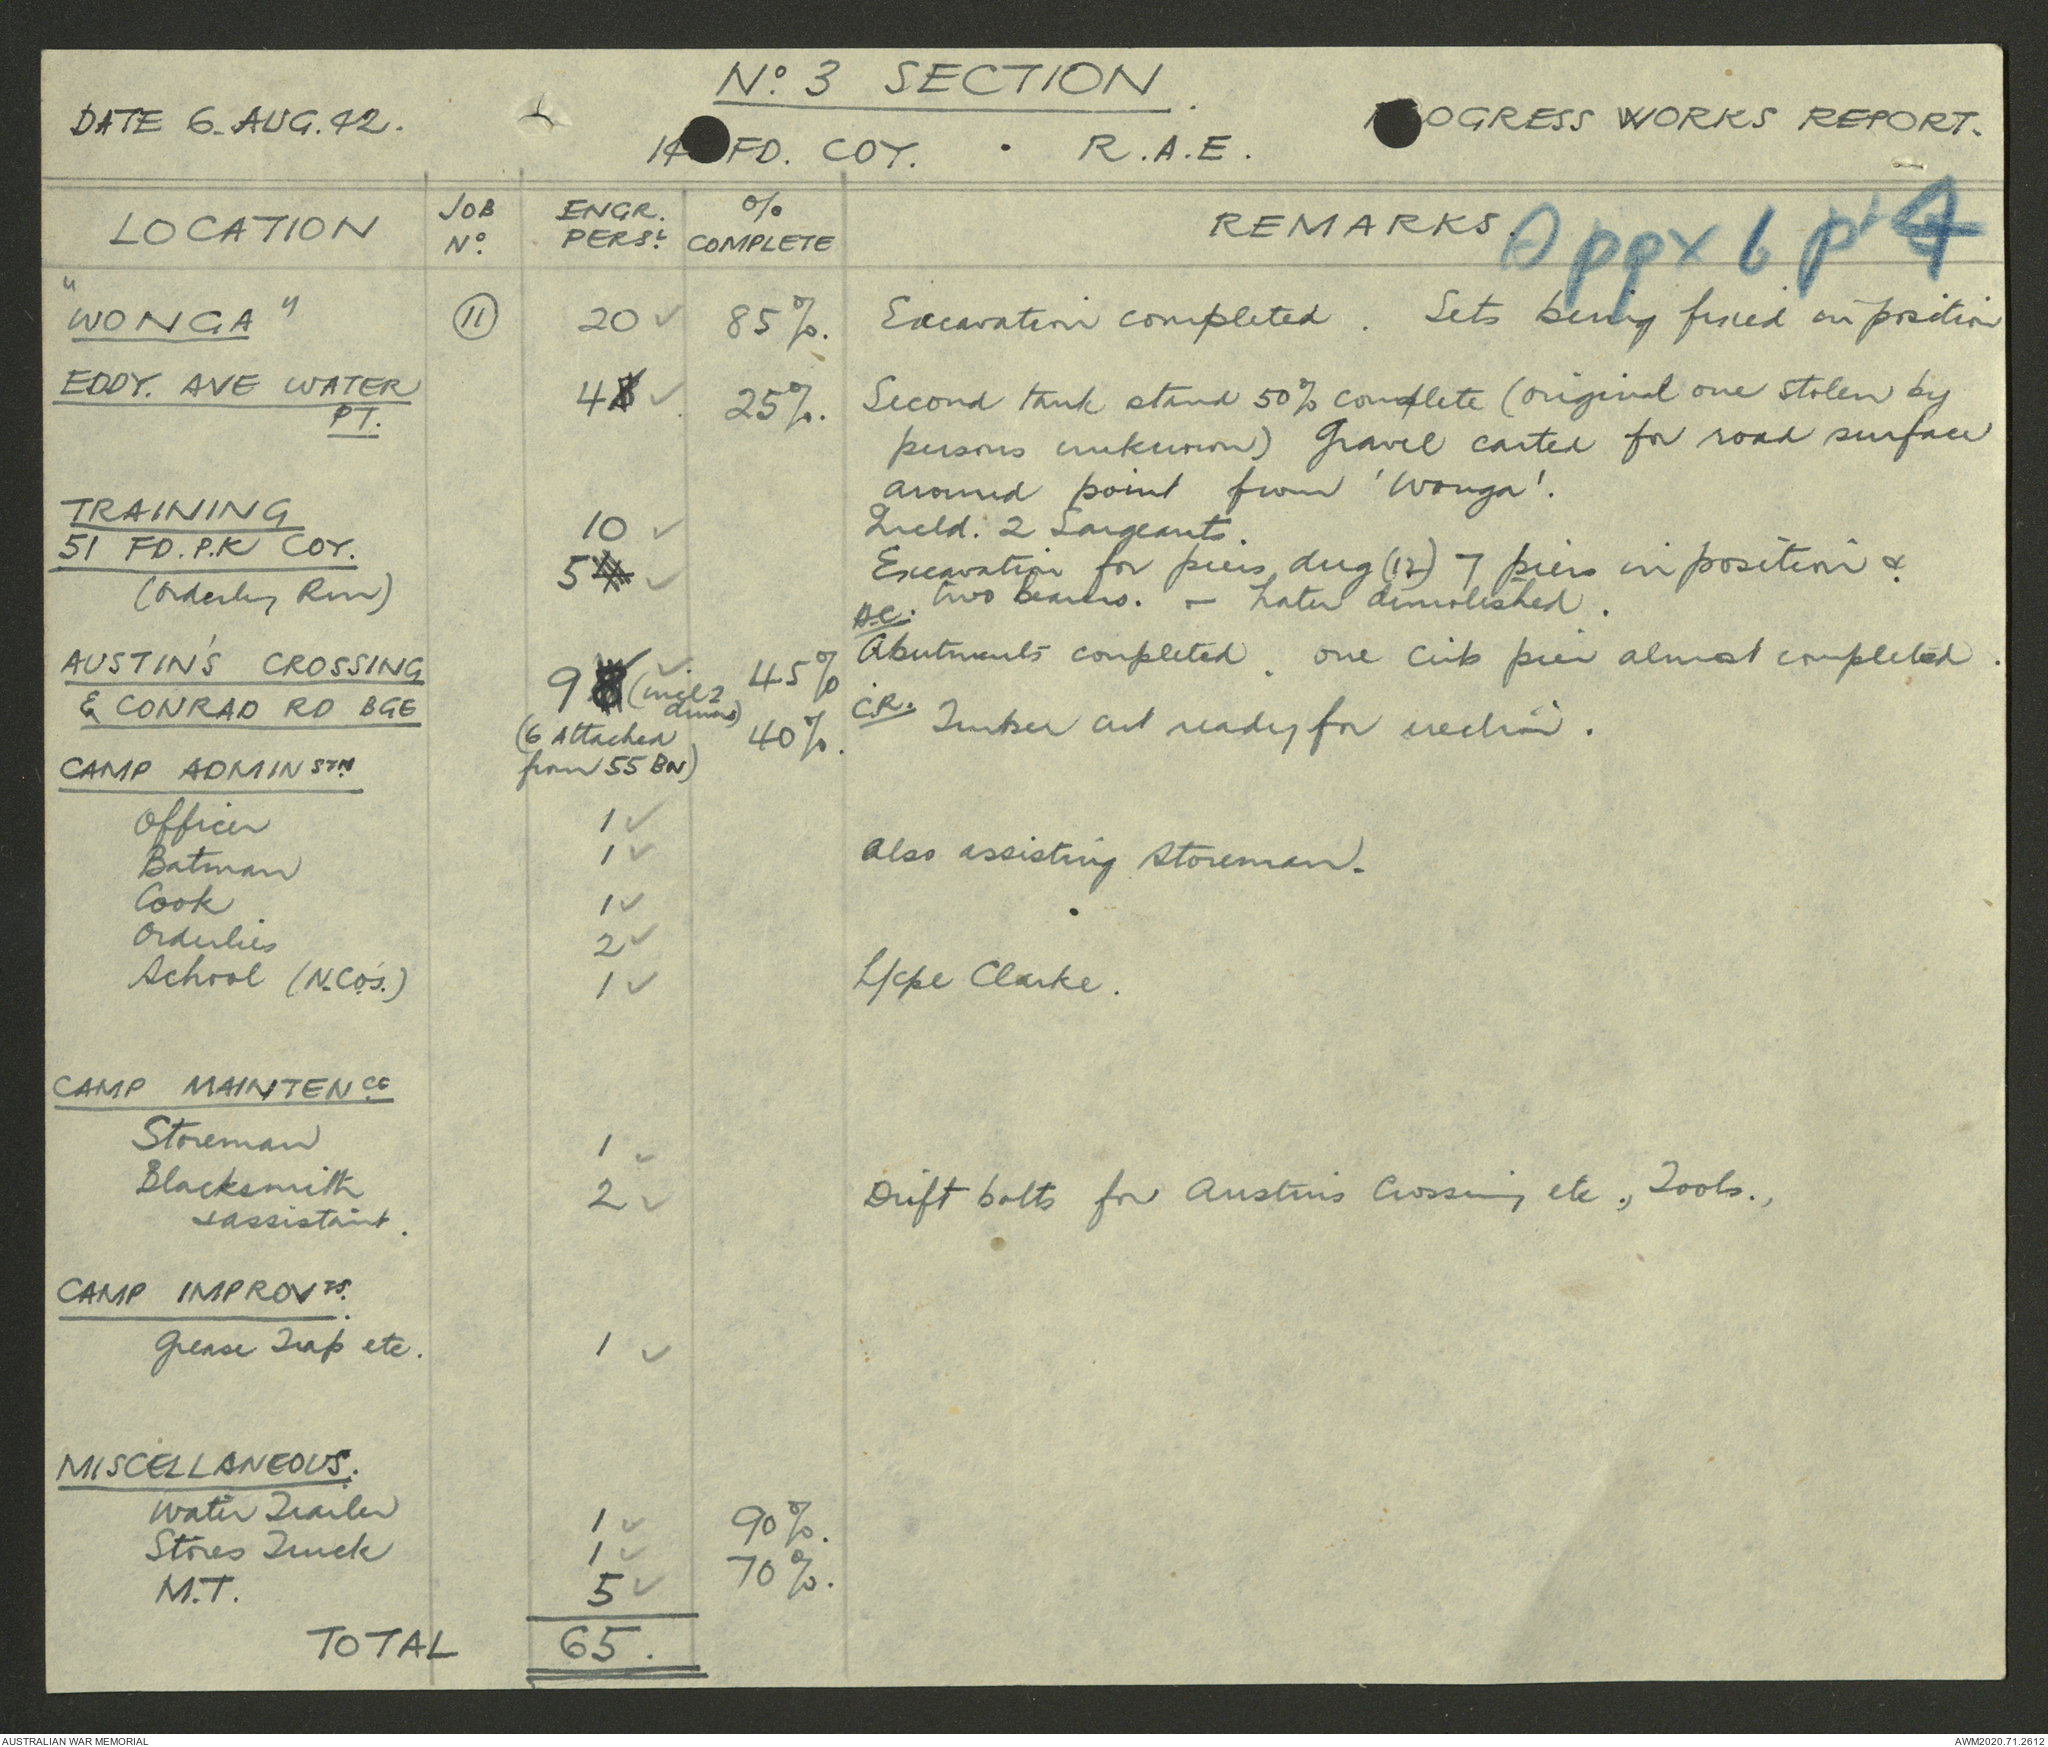 Nº. 3 SECTION.
DATE 6. AUG. 42.
PROGRESS WORKS REPORT.
14 FD. COY. . R.A.E.
LOCATION JOB Nº. ENGR. PERSL. % COMPLETE REMARKS.
Appx 6 pt
"WONGA" 11 20 ✓ 85%. Excavation completed. Sets being fixed in position
EDDY. AVE WATER PT. 4 ✓ 25%. Second tank stand 50% complete (original one stolen by
persons unknown) Gravel carted for road surface
around point from 'Wonga'.
TRAINING 10 ✓ Incld. 2 Sargeants.
51 FD. P.K COY. 5 ✓ Excavation for piers dug (12) 7 piers in position &
(Orderley Rm) two bearers. - Later demolished.
AUSTIN'S CROSSING 9 ✓ (incl 2 drivers) 45% A.C. Abutments completed. one crib pier almost completed.
& CONRAD RD BGE 40%. C.R. Timber cut ready for erection.
(6 Attached
from 55 BN)
CAMP ADMINSTN
Officer 1 ✓
Batman 1 ✓ Also assisting Storeman.
Cook 1 ✓
Orderlies 2 ✓
School (N.CO's.) 1 ✓ L/cpl Clarke.
CAMP MAINTENCE
Storeman 1 ✓
Blacksmith 2 ✓ Drift bolts for Austins Crossing etc., Tools.,
& assistant.
CAMP IMPROVTS.
Grease Trap etc. 1 ✓
MISCELLANEOUS.
Water Trailer 1 ✓ 90%.
Stores Truck 1 ✓ 70%.
M.T. 5 ✓
TOTAL 65.
AUSTRALIAN WAR MEMORIAL
AWM2020.71.2612